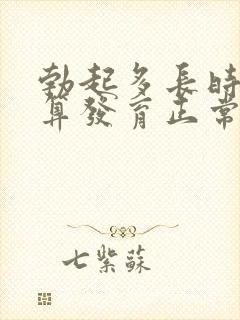 勃起多長時
算發育正常
七紫蘇